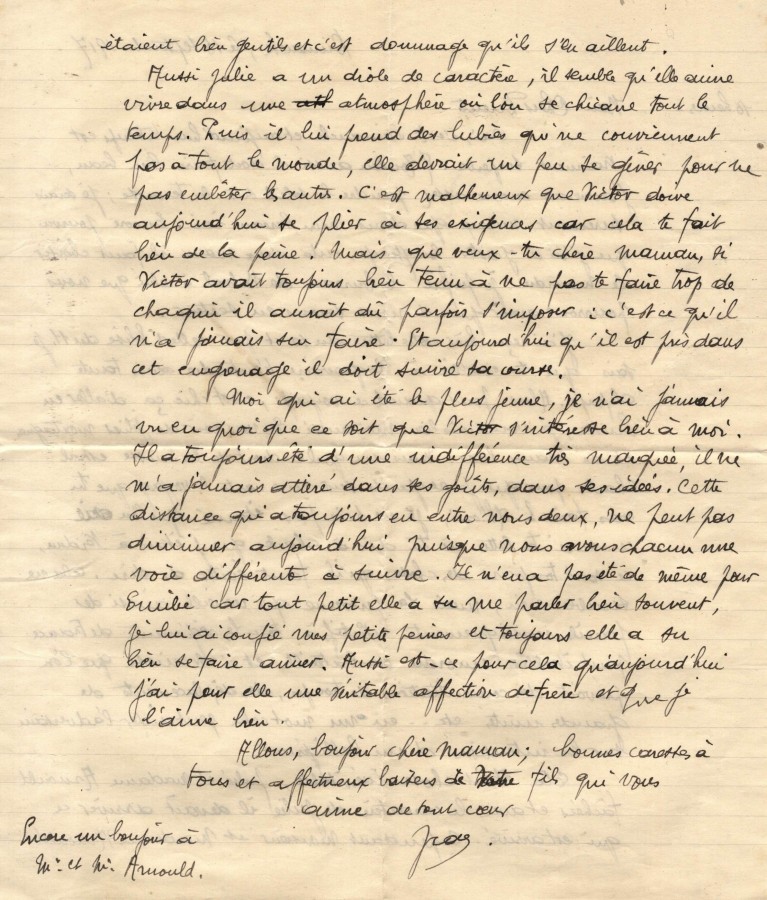 étaient bien gentils et c'est dommage qu'ils s'en aillent.
Aussi Julie a un drôle de caractère, il semble qu'elle aime
vivre dans une atmosphère où l'on se chicane tout le
temps. Puis il lui prend des lubies qui ne conviennent
pas à tout le monde, elle devrait un peu se gêner pour ne
pas embêter les autres. C'est malheureux que Victor doive
aujourd'hui se plier à ses exigences car cela te fait
bien de la peine. Mais que veux-tu chère maman, si
Victor avait toujours bien tenu à ne pas te faire trop de
chagrin il aurait dû parfois s'imposer : c'est ce qu'il
n'a jamais su faire. Et aujourd'hui qu'il est pris dans
cet engrenage il doit suivre sa course.
Moi qui ai été le plus jeune, je n'ai jamais
vu en quoi que ce soit que Victor s'intéresse bien à moi.
Il a toujours été d'une indifférence très marquée, il ne
m'a jamais attiré dans ses goûts, dans ses idées. Cette
distance qu'a toujours eu entre nous deux, ne peut pas
diminuer aujourd'hui puisque nous avons chacun une
voie différente à suivre. Il n'en a pas été de même pour
Emilie car tout petit elle a su me parler bien souvent,
je lui ai confié mes petites peines et toujours elle a su
bien se faire aimer. Aussi est-ce pour cela qu'aujourd'hui
j'ai pour elle une véritable affection de frère et que je
l'aime bien.
Allons, bonjour chère maman; bonnes caresses à
tous et affectueux baisers de votre fils qui vous
aime de tout cœur
Encore un bonjour à
Mr et Me Arnould.